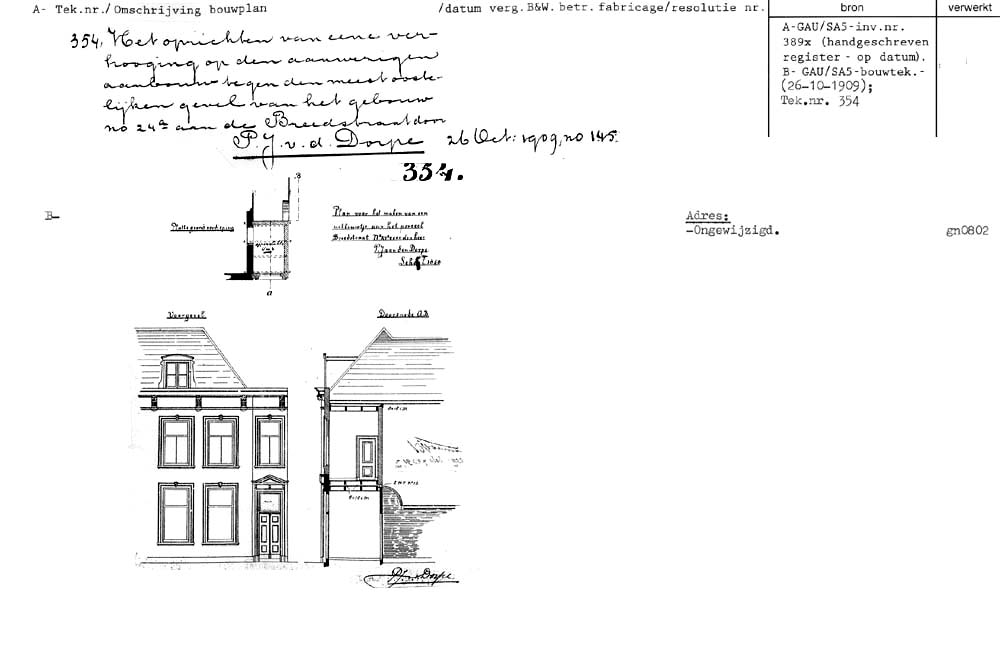 A- Tek.nr./Omschrijving bouwplan /datum verg.B&W. betr. fabricage/resolutie nr. bron verwerkt
A-GAU/SA5-inv.nr.
389x (handgeschreven
register - op datum).
B- GAU/SA5-bouwtek.-
(26-10-1909);
Tek.nr. 354
354. Het oprichten van eene ver-
hooging op den aanwezigen
aanbouw tegen den meest ooste-
lijken gevel van het gebouw
no 24a aan de Breedstraat door
P. J. v. d. Dorpe 26 Oct: 1909, no 145.
354.
B
B-
Plan voor het maken van een
aan het perceel
Breedstraat
P.J. van den Dorpe
a
Adres:
-Ongewijzigd. gn0802
Voorgevel Doorsnede A.B.
P.J. v. d. Dorpe